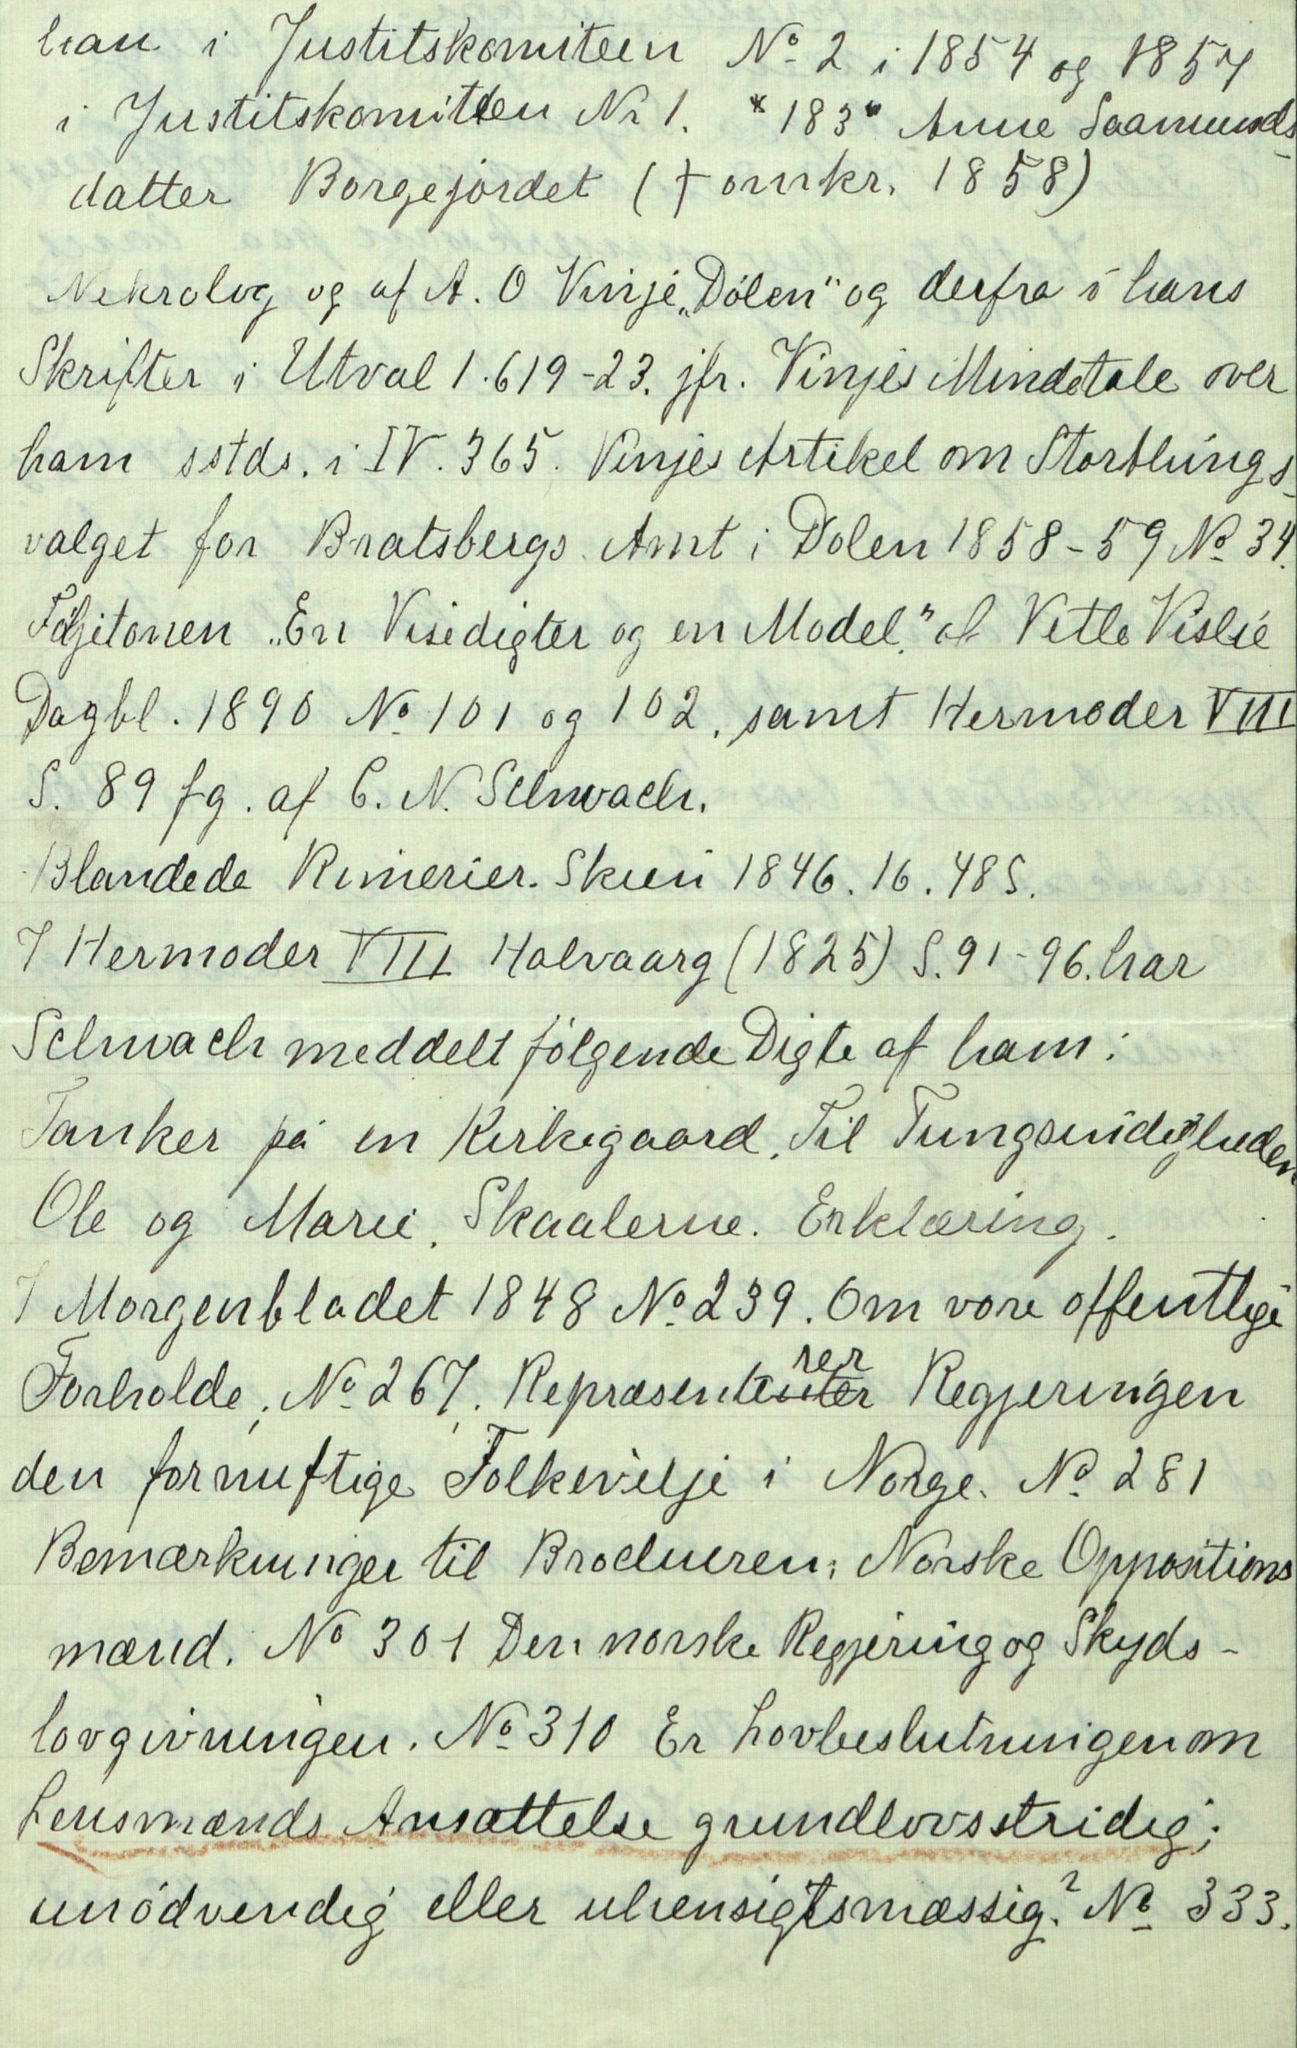 han i Justitskomiteen No 2 i 1854 og 1857
i Justitskomitten Nr 1. * 183" Anne Saamunds-
datter Borgejordet († omkr. 1858)
Nekrolog og af A. O Vinje „Dölen" og derfra i hans
Skrifter i Utval 1.619-23. jfr. Vinjes Mindetale over
ham sstds. i IV. 365. Vinjes Artikel om Storthings-
valget for Bratsbergs Amt i Dolen 1858-59 No 34.
Följetonen „En Visedigter og en Model." af Vetle Vislie
Dagbl. 1890 No 101 og 102, samt Hermoder VIII
S. 89 fg. af C. N. Schwach.
Blandede Rimerier. Skien 1846. 16. 48 S.
I Hermoder VIII Halvaarg (1825) S. 91-96. har
Schwach meddelt følgende Digte af ham:
Tanker på en Kirkegaard. Til Tungsindigheden
Ole og Marie. Skaalerne. Erklæring.
I Morgenbladet 1848 No 239. Om vore offentlige
Forholde; No 267. Repræsenterer Regjeringen
den fornuftige Folkevilje i Norge. No 281
Bemærkninger til Brochuren: Norske Oppositions
mænd. No 301 Den norske Regjering og Skyds-
lovgivningen. No 310 Er Lovbeslutningen om
Lensmænds Ansættelse grundlovsstridig;
unödvendig eller uhensigtsmæssig? No 333.